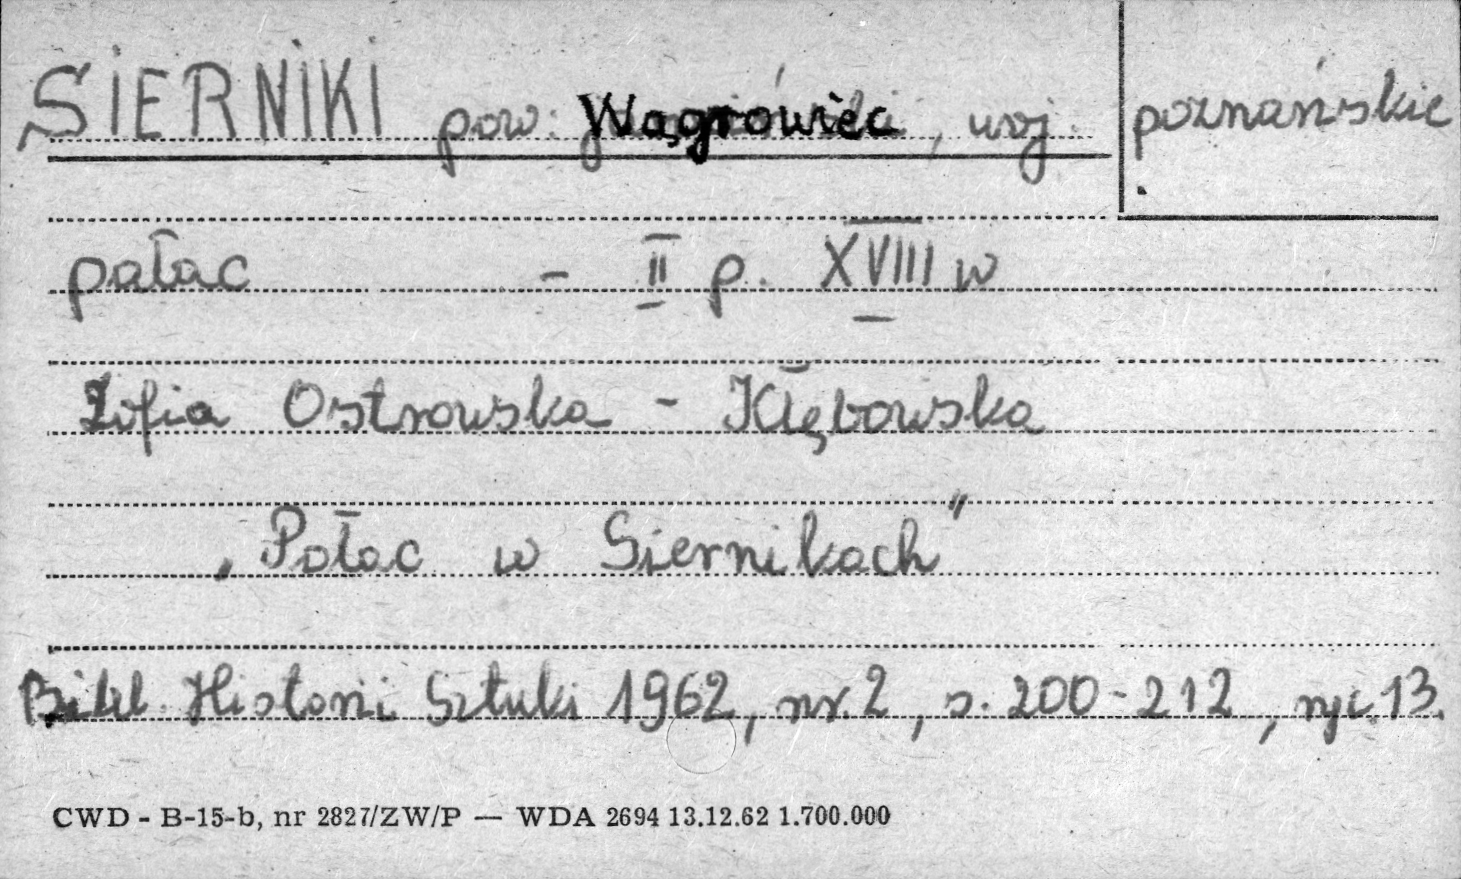 SIERNIKI pow. Wągrowiec, woj. poznańskie
pałac - II p. XVIII w
Zofia Ostrowska - Kłębowska
„Pałac w Siernikach"
Historii Sztuki 1962, nr. 2, s. 200-212, ryc. 13.
CWD - B-15-b, nr 2827/ZW/P — WDA 2694 13.12.62 1.700.000